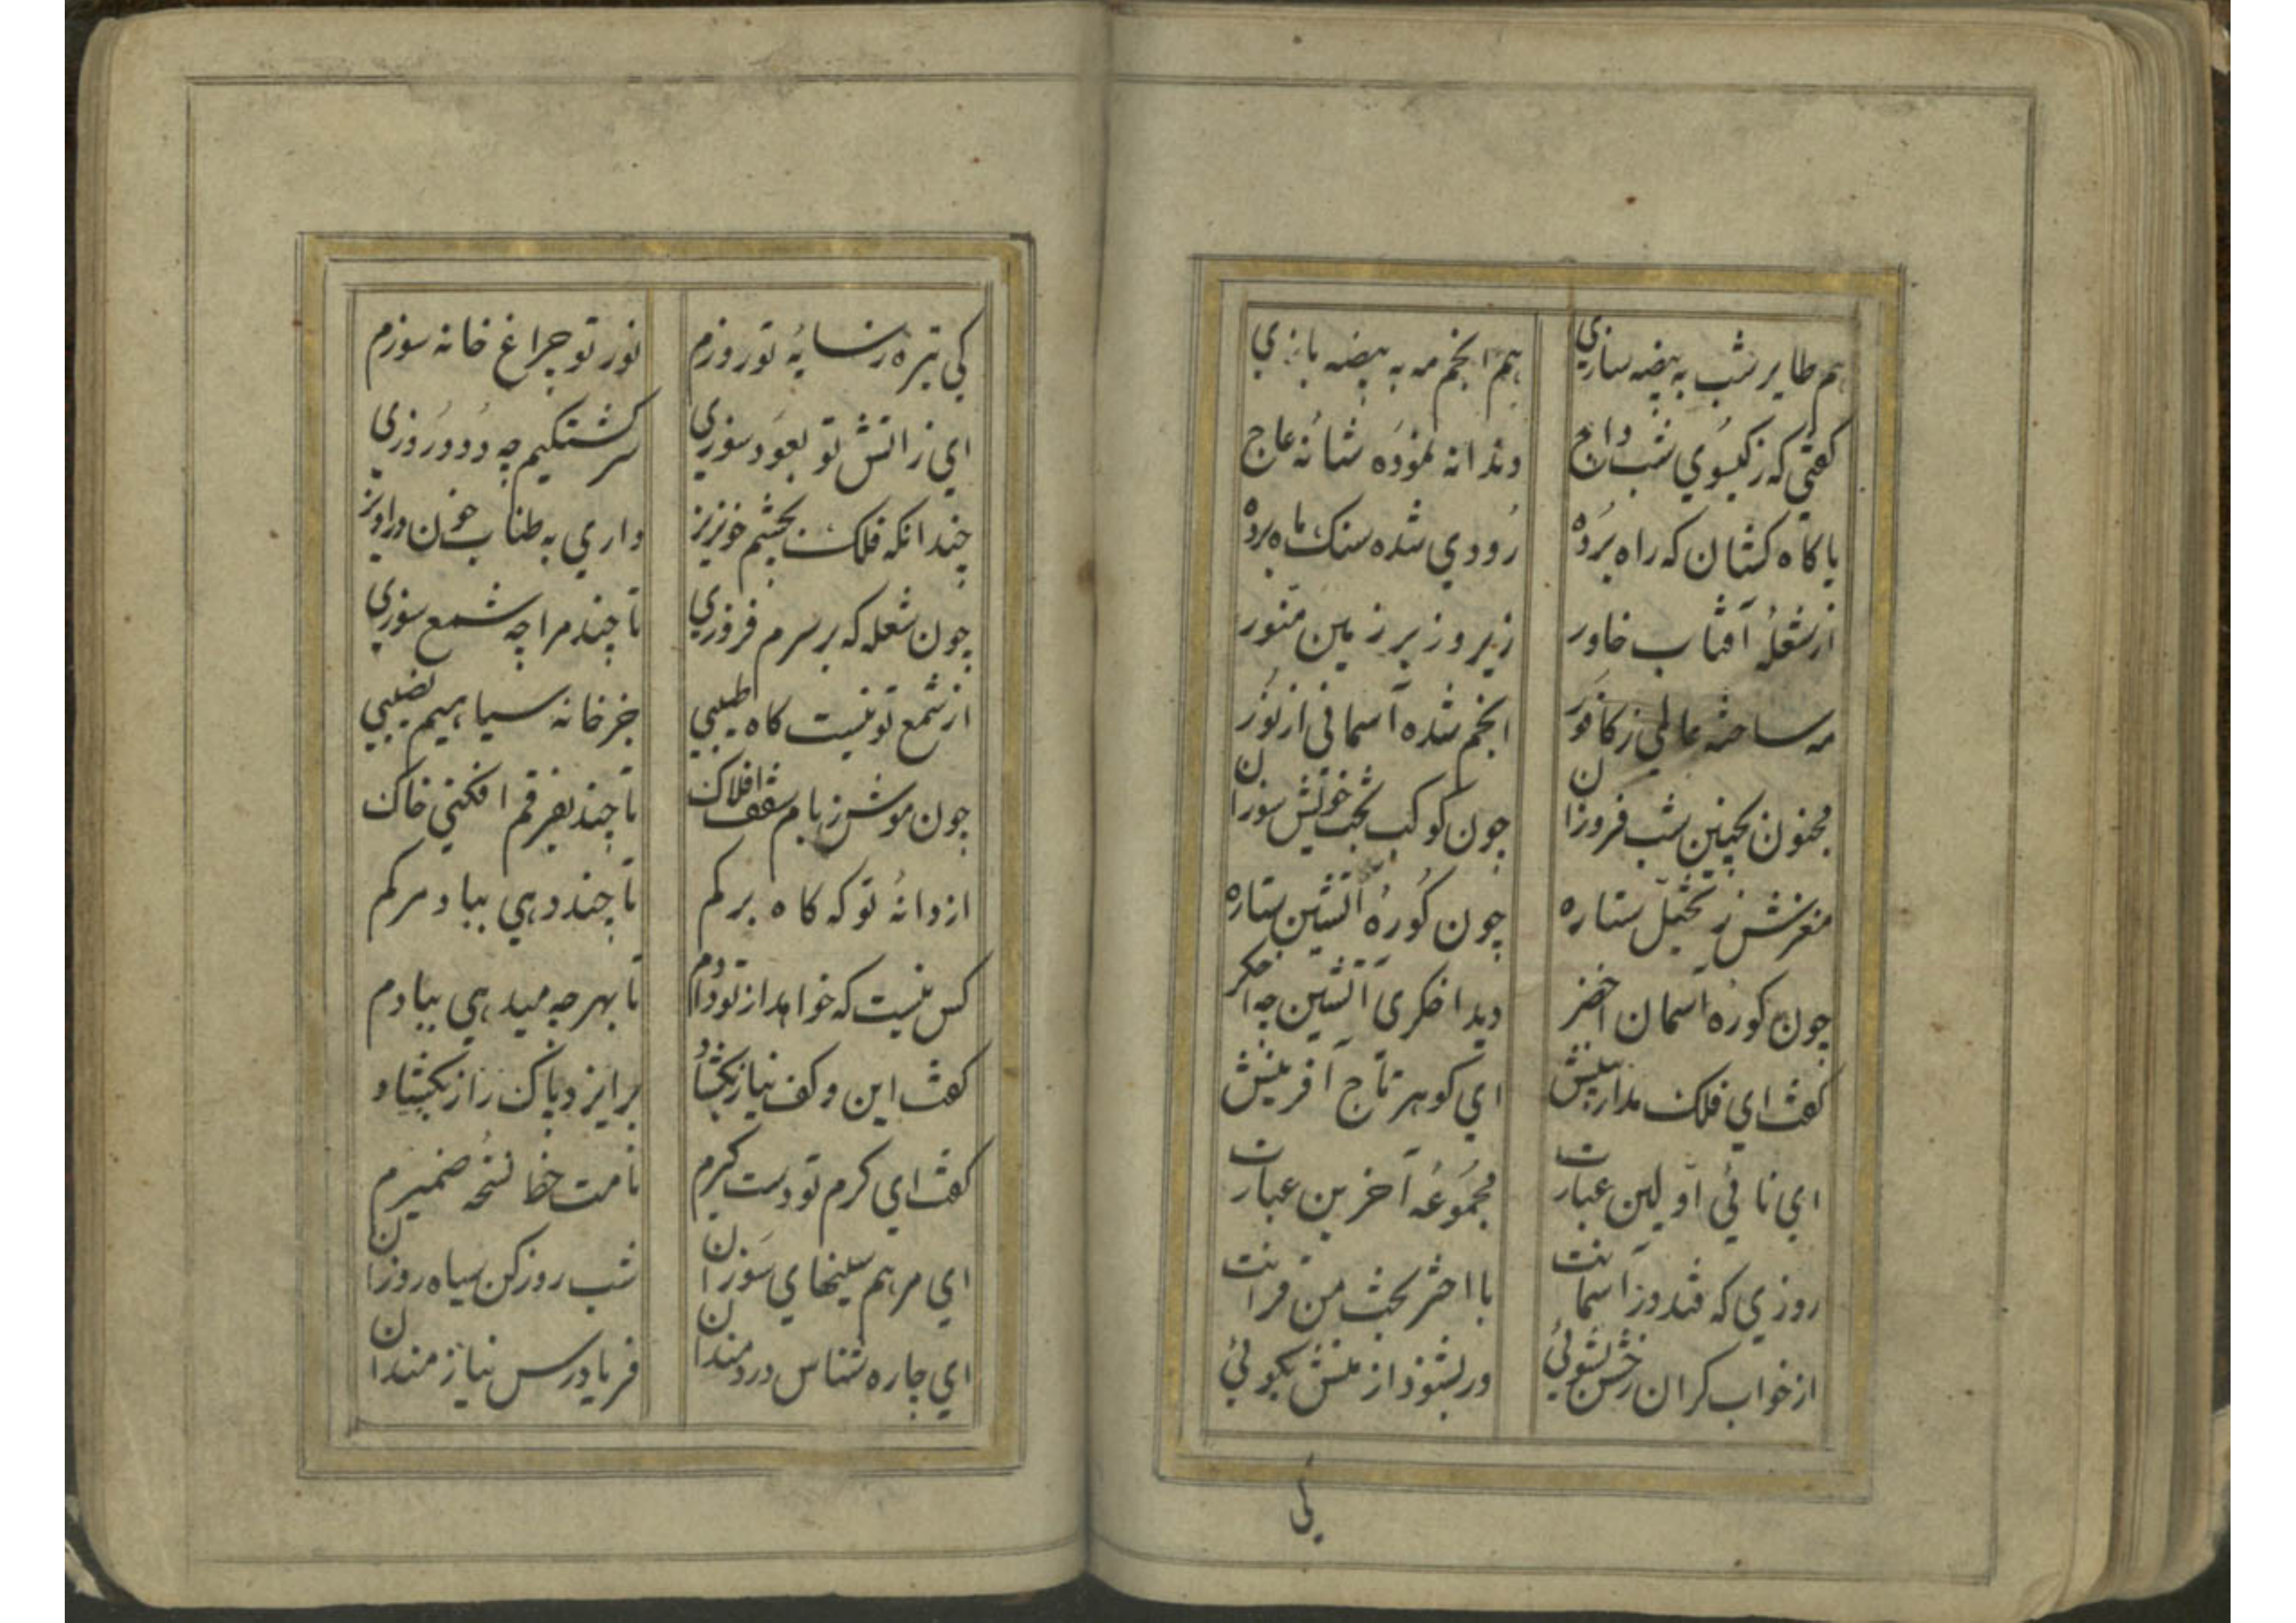 هم طایر شب به بیضه سازی
هم انجم مه به بیضه بازی
گفتی که ز گیسوی شب داج
دندانه نموده شانه عاج
با کاه کشان که راه برده
رودی شده سنک ماه برده
از شعلهٔ آفتاب خاور
زیر و زبر زمین منور
مه ساخته عالمی ز کافور
انجم شده آسمانی از نور
مجنون بچنین شب فروزان
چون کوکب بخت خویش سوزان
مغزش ز تخیل ستاره
چون کورهٔ آتشین ستاره
چون کوره آسمان اخضر
دید اخکری آتشین چه اخکر
کفت ای فلک مدار بینش
ای کوهر تاج آفرینش
ای ثانی اولین عبارت
مجموعه آخرین عبارت
روزی که فتد در آسمانت
با اختر بخت من قرانت
از خواب کران رخش بشوئی
ور بشنود از منش بکوئی
کی
کی تیره ز سایهٔ تو روزم
نور تو چراغ خانه سوزم
ای ز آتش تو بعود سوزی
سرکشتکیم چه دود روزی
چندانکه فلک بچشم خونریز
داری به طناب خون در آویز
چون شعله که بر سرم فروزی
تا چند مرا چه شمع سوزی
از شمع تو نیست کاه طیبی
جز خانه سیاهیم نصیبی
چون موش ز بام سقف افلاک
تا چند بفرقم افکنی خاک
از دانهٔ تو که کاه برکم
تا چند دهی بباد مرکم
کس نیست که خواهد از تو دادم
تا بهر چه میدهی ببادم
کفت این و کف نیاز بکشاد
بر ایزد پاک راز بکشاد
کفت ای کرم تو دست کیرم
نامت خط نسخه ضمیرم
ای مرهم سینهای سوزان
شب روز کن سیاه روزان
ای چاره شناس دردمندان
فریادرس نیازمندان